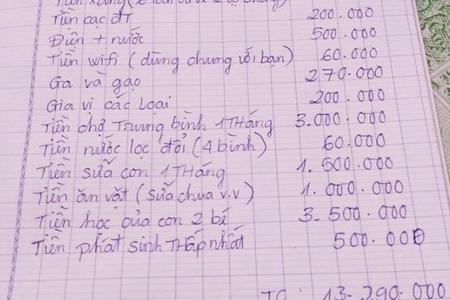 Tiền cạc ĐT 200.000
Điện + nước 500.000
Tiền wifi (dùng chung với bạn) 60.000
Ga và gạo 270.000
Gia vị các loại 200.000
Tiền chợ Trung bình 1 THáng 3.000.000
Tiền nước lọc đổi (4 bình) 60.000
Tiền sữa con 1 THáng 1.500.000
Tiền ăn vặt (sữa chua v.v) 1.000.000
Tiền học của con 2 bé 3.500.000
Tiền phát sinh THấp nhất 500.000
TC: 13.290.000